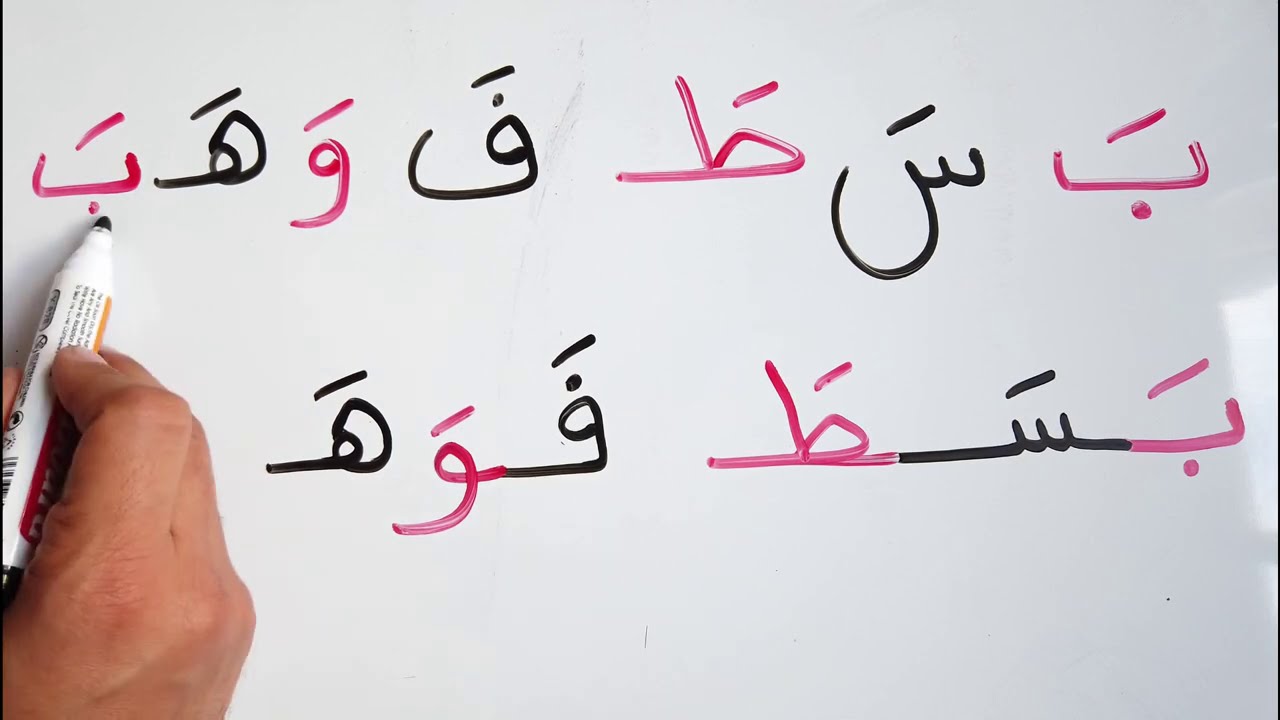 بَ سَ طَ فَ وَ هَ بَ
بَسَطَ فَوَهَ